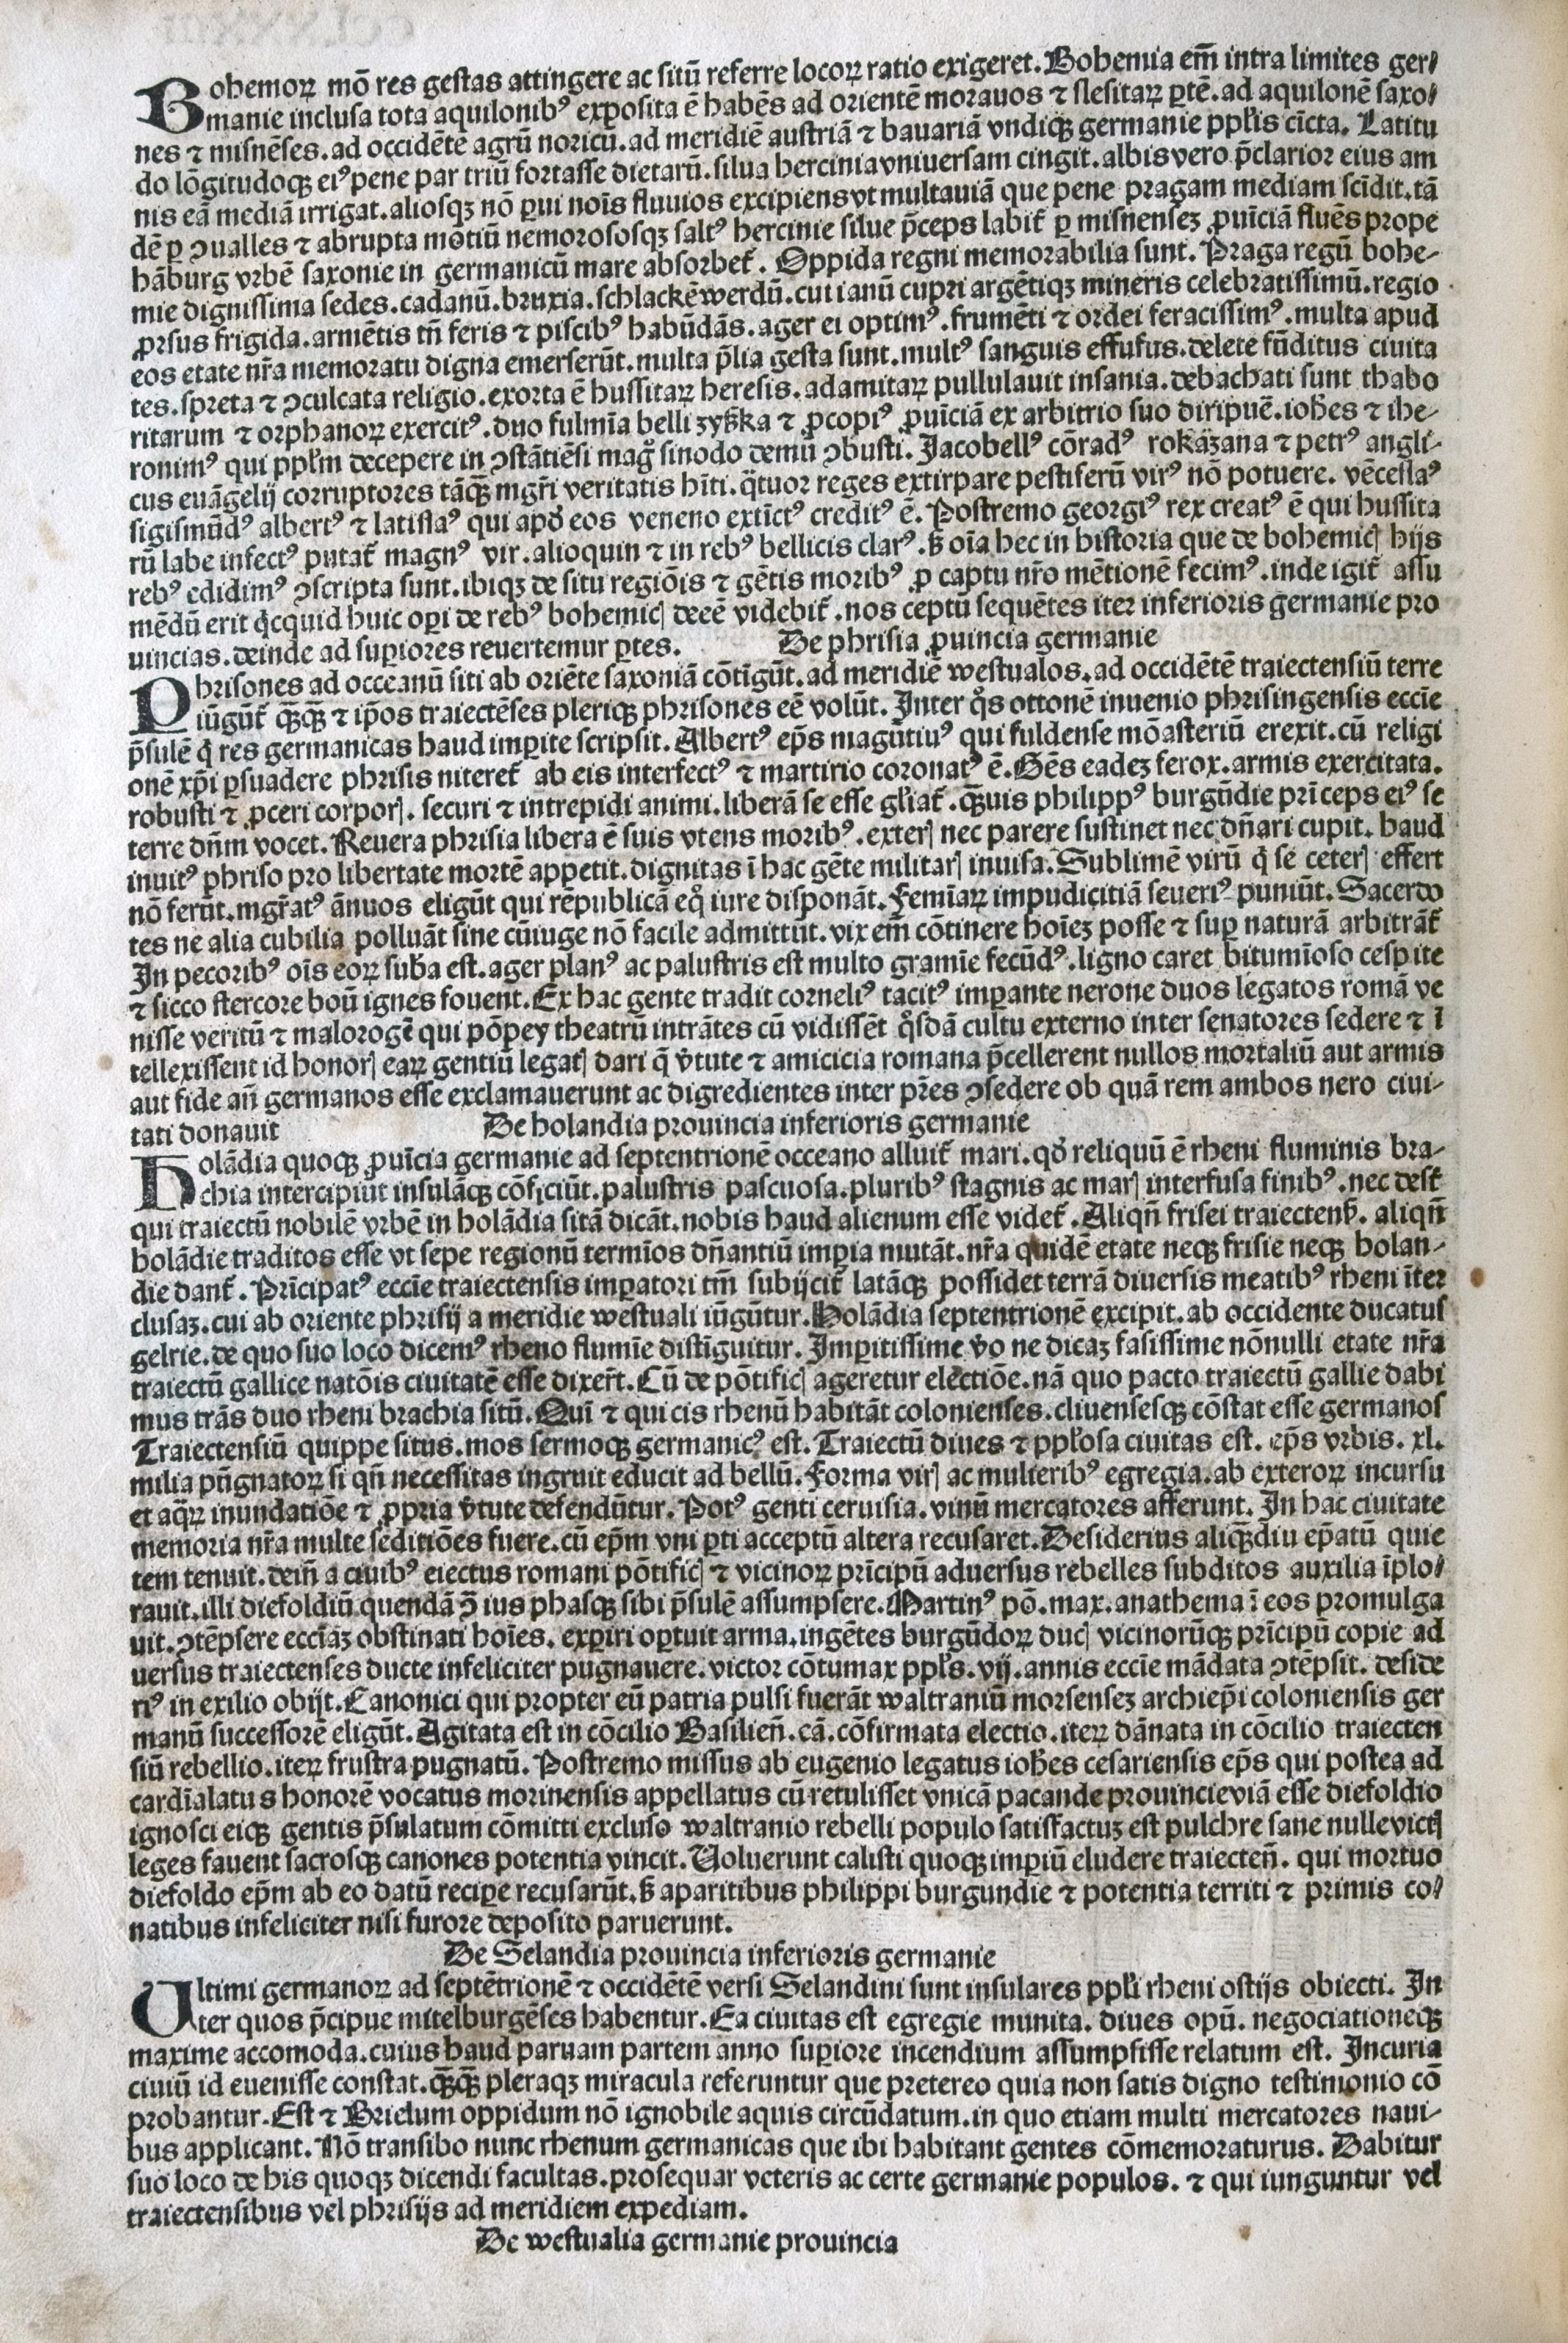 Bohemoꝝ mō res gestas attingere ac sitū referre locoꝝ ratio exigeret. Bohemia em̄ intra limites ger⸗
manie inclusa tota aquilonibꝰ exposita ē habēs ad orientē morauos ⁊ slesitaꝝ ꝑtē. ad aquilonē saxo⸗
nes ⁊ misnēses. ad occidēte agrū noricū. ad meridiē austriā ⁊ bauariā vndiqꝫ germanie ppl̄is cīcta. Latitu
do lōgitudoqꝫ eiꝰ pene par triū fortasse dietarū. silua hercinia vniuersam cingit. albis vero p̄clarior eius am
nis eā mediā irrigat. aliosqꝫ nō ꝑui noīs fluuios excipiens vt multauiā que pene pragam mediam scīdit. tā
dē ꝑ ꝯualles ⁊ abrupta mōtiū nemorososqꝫ saltꝰ hercinie silue p̄ceps labit̄ ꝑ misnensez ꝓuīciā fluēs prope
hāburg vrbē saxonie in germanicū mare absorbet̄. Oppida regni memorabilia sunt. Praga regū bohe-
mie dignissima sedes. cadanū. bruxia. schlackēwerdū. cui ianū cupri argētiqꝫ mineris celebratissimū. regio
ꝓrsus frigida. armētis tn̄ feris ⁊ piscibꝰ habūdās. ager ei optimꝰ. frumēti ⁊ ordei feracissimꝰ. multa apud
eos etate nr̄a memoratu digna emerserūt. multa p̄lia gesta sunt. multꝰ sanguis effusus. delete fūditus ciuita
tes. spreta ⁊ ꝯculcata religio. exorta ē hussitaꝝ heresis. adamitaꝝ pullulauit insania. debachati sunt thabo
ritarum ⁊ orphanoꝝ exercitꝰ. duo fulmīa belli zyßka ⁊ ꝓcopiꝰ ꝓuīciā ex arbitrio suo diripuē. ioh̄es ⁊ ihe-
ronimꝰ qui ppl̄m decepere in ꝯstātiēsi mag° sinodo demū ꝯbusti. Jacobellꝰ cōradꝰ rokäzana ⁊ petrꝰ angli-
cus euāgelij corruptores tāqꝫ mgr̄i veritatis hīti. q̄tuor reges extirpare pestiferū virꝰ nō potuere. vēceslaꝰ
sigismūdꝰ albertꝰ ⁊ latislaꝰ qui apd̓ eos veneno extīctꝰ creditꝰ ē. Postremo georgiꝰ rex creatꝰ ē qui hussita
rū labe infectꝰ putat̄ magnꝰ vir. alioquin ⁊ in rebꝰ bellicis clarꝰ. ß oīa hec in historia que de bohemicꝭ hijs
rebꝰ edidimꝰ ꝯscripta sunt. ibiqꝫ de situ regiōis ⁊ gētis moribꝰ ꝓ captu nr̄o mētionē fecimꝰ. inde igit̄ assu
mēdū erit q̄cquid huic oꝑi de rebꝰ bohemicꝭ deeē videbit̄. nos ceptū sequētes iter inferioris germanie pro
uincias. deinde ad suꝑiores reuertemur ꝑtes. De phrisia ꝓuincia germanie
Phrisones ad occeanū siti ab oriēte saxoniā cōtigūt. ad meridiē westualos. ad occidētē traiectensiū terre
iūgūt̄ qꝫqꝫ ⁊ ip̄os traiectēses pleriqꝫ phrisones eē volūt. Inter q̊s ottonē inuenio phrisingensis eccīe
p̄sulē q̇ res germanicas haud imꝑite scripsit. Albertꝰ ep̄s magūtiuꝰ qui fuldense mōasteriū erexit. cū religi
onē xp̄i ꝑsuadere phrisis niteret̄ ab eis interfectꝰ ⁊ martirio coronatꝰ ē. Gēs eadez ferox. armis exercitata.
robusti ⁊ ꝓceri corporꝭ. securi ⁊ intrepidi animi. liberā se esse gl̄iat̄. qꝫuis philippꝰ burgūdie prīceps eiꝰ se
terre dn̄m vocet. Reuera phrisia libera ē suis vtens moribꝰ. exterꝭ nec parere sustinet nec dn̄ari cupit. haud
inuitꝰ phriso pro libertate mortē appetit. dignitas ī hac gēte militarꝭ inuisa. Sublimē virū q̇ se ceterꝭ effert
nō ferūt. mgr̄atꝰ ānuos eligūt qui rēpublicā eq̊ iure disponāt. Femīaꝝ impudicitiā seueriꝰ puniūt. Sacerdo
tes ne alia cubilia polluāt sine cūiuge nō facile admittūt. vix em̄ cōtinere hoīez posse ⁊ suꝑ naturā arbitrāt̄
In pecoribꝰ oīs eoꝝ sub̄a est. ager planꝰ ac palustris est multo gramīe fecūdꝰ. ligno caret bitumīoso cespite
⁊ sicco stercore boū ignes fouent. Ex hac gente tradit corneliꝰ tacitꝰ imꝑante nerone duos legatos romā ve
nisse veritū ⁊ malorogē qui pōpey theatrū intrātes cū vidissēt q̊sdā cultu externo inter senatores sedere ⁊ ī
tellexissent id honorꝭ eaꝝ gentiū legatꝭ dari q̄ v̓tute ⁊ amicicia romana p̄cellerent nullos mortaliū aut armis
aut fide an̄ germanos esse exclamauerunt ac digredientes inter pr̄es ꝯsedere ob quā rem ambos nero ciui-
tati donauit De holandia prouincia inferioris germanie
Holādia quoqꝫ ꝓuīcia germanie ad septentrionē occeano alluit̄ mari. qd̓ reliquū ē rheni fluminis bra-
chia intercipiūt insulāqꝫ cōficiūt. palustris pascuosa. pluribꝰ stagnis ac marꝭ interfusa finibꝰ. nec desūt
qui traiectū nobilē vrbē in holādia sitā dicāt. nobis haud alienum esse videt̄. Aliqn̄ frisei traiectenß. aliqn̄
holādie traditos esse vt sepe regionū termīos dn̄antiū imꝑia mutāt. nr̄a quidē etate neqꝫ frisie neqꝫ holan-
die dant̄. Prīcipatꝰ eccīe traiectensis imꝑatori tm̄ subijcit̄ latāqꝫ possidet terrā diuersis meatibꝰ rheni īter
clusaz. cui ab oriente phrisij a meridie westuali iūgūtur. Holādia septentrionē excipit. ab occidente ducatus
gelrie. de quo suo loco dicemꝰ rheno flumīe distīguitur. Imꝑitissime v̓o ne dicaz fasissime nōnulli etate nr̄a
traiectū gallice natōis ciuitatē esse dixer̄t. Cū de pōtificꝭ ageretur electiōe. nā quo pacto traiectū gallie dabi
mus trās duo rheni brachia sitū. Quī ⁊ qui cis rhenū habitāt colonienses. cliuensesqꝫ cōstat esse germanos
Traiectensiū quippe situs. mos sermoqꝫ germanicꝰ est. Traiectū diues ⁊ ppl̄osa ciuitas est. ep̄s vrbis. xl.
milia pūgnatoꝝ si qn̄ necessitas ingruit educit ad bellū. Forma virꝭ ac mulieribꝰ egregia. ab exteroꝝ incursu
et aq̄ꝝ inundatiōe ⁊ ꝓpria v̓tute defendūtur. Potꝰ genti ceruisia. vinū mercatores afferunt. In hac ciuitate
memoria nr̄a multe seditiōes fuere. cū ep̄m vni ꝑti acceptū altera recusaret. Desiderius aliqꝫdiu ep̄atū quie
tem tenuit. deīn a ciuibꝰ eiectus romani pōtificꝭ ⁊ vicinoꝝ prīcipū aduersus rebelles subditos auxilia īplo⸗
rauit. illi diefoldiū quendā ꝯ̄ ius phasqꝫ sibi p̄sulē assumpsere. Martinꝰ pō. max. anathema ī eos promulga
uit. ꝯtēpsere eccīaz obstinati hoīes. exꝑiri oꝑtuit arma. ingētes burgūdoꝝ ducꝭ vicinorūqꝫ prīcipū copie ad
uersus traiectenses ducte infeliciter pugnauere. victor cōtumax ppl̄s. vij. annis eccīe mādata ꝯtēpsit. deside
riꝰ in exilio obijt. Canonici qui propter eū patria pulsi fuerāt waltraniū morsensez archiep̄i coloniensis ger
manū successorē eligūt. Agitata est in cōcilio Basilien̄. cā. cōfirmata electio. iteꝝ dānata in cōcilio traiecten
siū rebellio. iteꝝ frustra pugnatū. Postremo missus ab eugenio legatus ioh̄es cesariensis ep̄s qui postea ad
cardīalatus honorē vocatus morinensis appellatus cū retulisset vnicā pacande prouincie viā esse diefoldio
ignosci eiqꝫ gentis p̄sulatum cōmitti excluso waltranio rebelli populo satisfactuz est pulchre sane nulle victꝭ
leges fauent sacrosqꝫ canones potentia vincit. Uoluerunt calisti quoqꝫ imꝑiū eludere traiecten̄. qui mortuo
diefoldo ep̄m ab eo datū reciꝑe recusarūt. ß aparitibus philippi burgundie ⁊ potentia territi ⁊ primis co⸗
natibus infeliciter nisi furore deposito paruerunt.
De Selandia prouincia inferioris germanie
Ultimi germanoꝝ ad septētrionē ⁊ occidētē versi Selandini sunt insulares ppl̄i rheni ostijs obiecti. In
ter quos p̄cipue mitelburgēses habentur. Ea ciuitas est egregie munita. diues opū. negociationeqꝫ
maxime accomoda. cuius haud paruam partem anno suꝑiore incendium assumpsisse relatum est. Incuria
ciuiū id euenisse constat. qꝫqꝫ pleraqꝫ miracula referuntur que pretereo quia non satis digno testimonio cō
probantur. Est ⁊ Brielum oppidum nō ignobile aquis circūdatum. in quo etiam multi mercatores naui-
bus applicant. Nō transibo nunc rhenum germanicas que ibi habitant gentes cōmemoraturus. Dabitur
suo loco de his quoqꝫ dicendi facultas. prosequar veteris ac certe germanie populos. ⁊ qui iunguntur vel
traiectensibus vel phrisijs ad meridiem expediam.
De westualia germanie prouincia